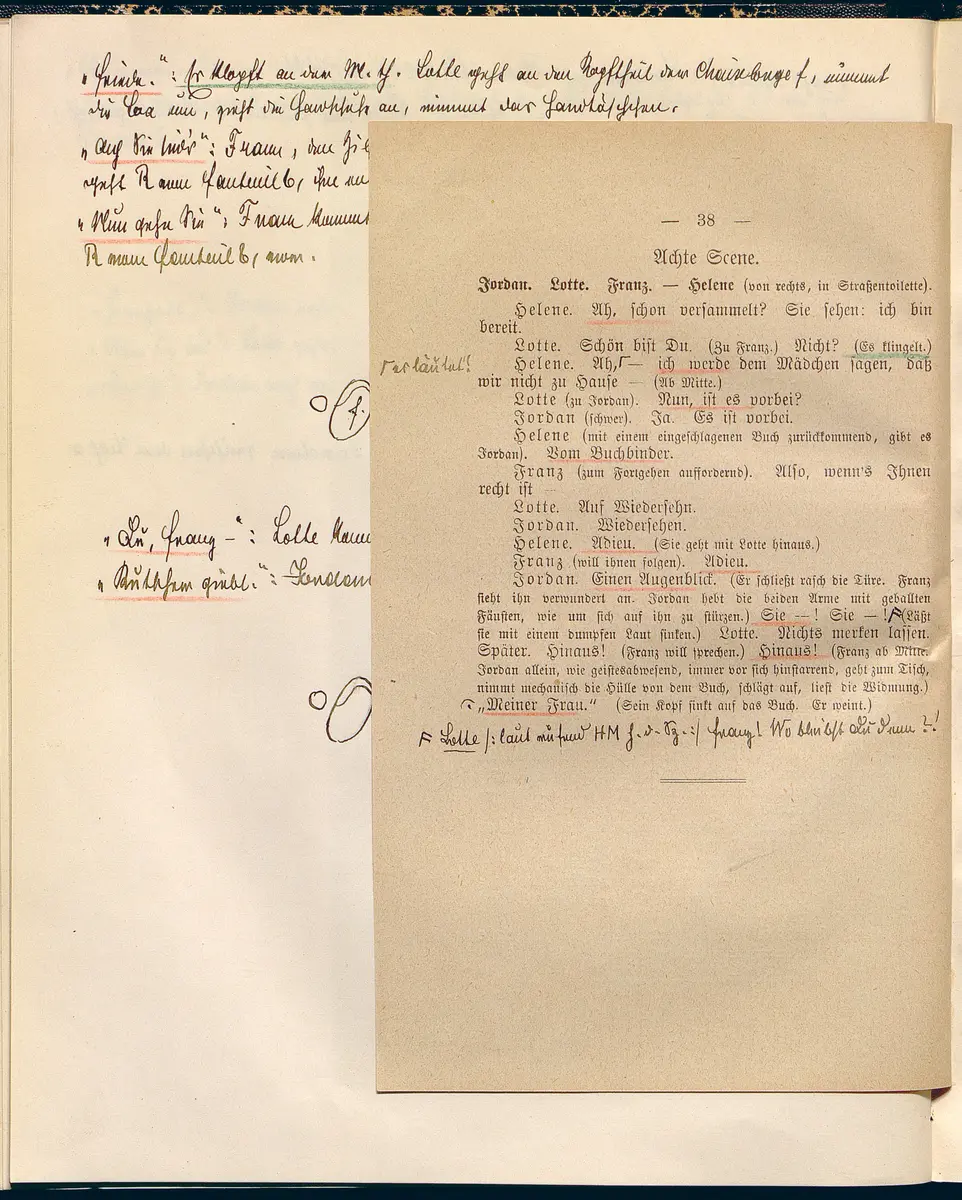 „Friede.“: Er klopft an der M. th. Lotte geht an den Kopftheil der Chaiselongue f, nimmt
die Boa um, zieht die Handschuhe an, nimmt das Handtäschchen.
„ Sie “: Franz, den
geht R vom Fauteuil b,
„Nun gehn Sie“: Franz kommt
R vom Fauteuil b, vor.
— 38 —
Achte Scene.
Jordan. Lotte. Franz. — Helene (von rechts, in Straßentoilette).
Helene. Ah, schon versammelt? Sie sehen: ich bin
bereit.
Lotte. Schön bist Du. (Zu Franz.) Nicht? (Es klingelt.)
┌ es läutet!
Helene. Ah,┌— ich werde dem Mädchen sagen, daß
wir nicht zu Hause — (Ab Mitte.)
Lotte (zu Jordan). Nun, ist es vorbei?
Jordan (schwer). Ja. Es ist vorbei.
Helene (mit einem eingeschlagenen Buch zurückkommend, gibt es
Jordan). Vom Buchbinder.
Franz (zum Fortgehen auffordernd). Also, wenn's Ihnen
recht ist —
Lotte. Auf Wiedersehn.
Jordan. Wiedersehen.
Helene. Adieu. (Sie geht mit Lotte hinaus.)
Franz (will ihnen folgen). Adieu.
Jordan. Einen Augenblick. (Er schließt rasch die Türe. Franz
sieht ihn verwundert an. Jordan hebt die beiden Arme mit geballten
Fäusten, wie um sich auf ihn zu stürzen.) Sie —! Sie —! F (Läßt
sie mit einem dumpfen Laut sinken.) Lotte. Nichts merken lassen.
Später. Hinaus! (Franz will sprechen.) Hinaus! (Franz ab Mitte.
Jordan allein, wie geistesabwesend, immer vor sich hinstarrend, geht zum Tisch,
nimmt mechanisch die Hülle von dem Buch, schlägt auf, liest die Widmung.)
„Meiner Frau.“ (Sein Kopf sinkt auf das Buch. Er weint.)
F Lotte /: laut rufend HM h. d. Sz. :/ Franz! Wo bleibst Du denn?!
f.
„Du, Franz –“: Lotte kommt
„ giebt.“: Jordan